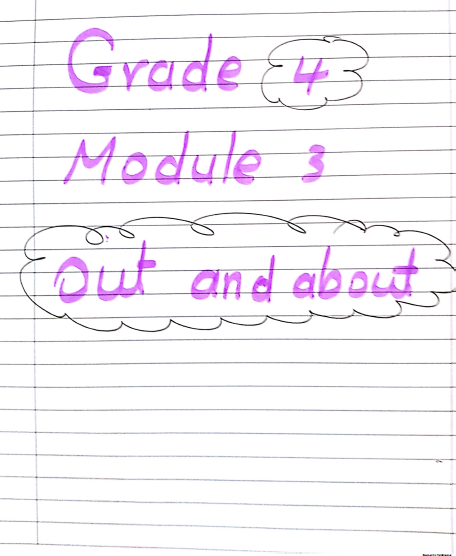 Grade 4
Module 3
Out and about